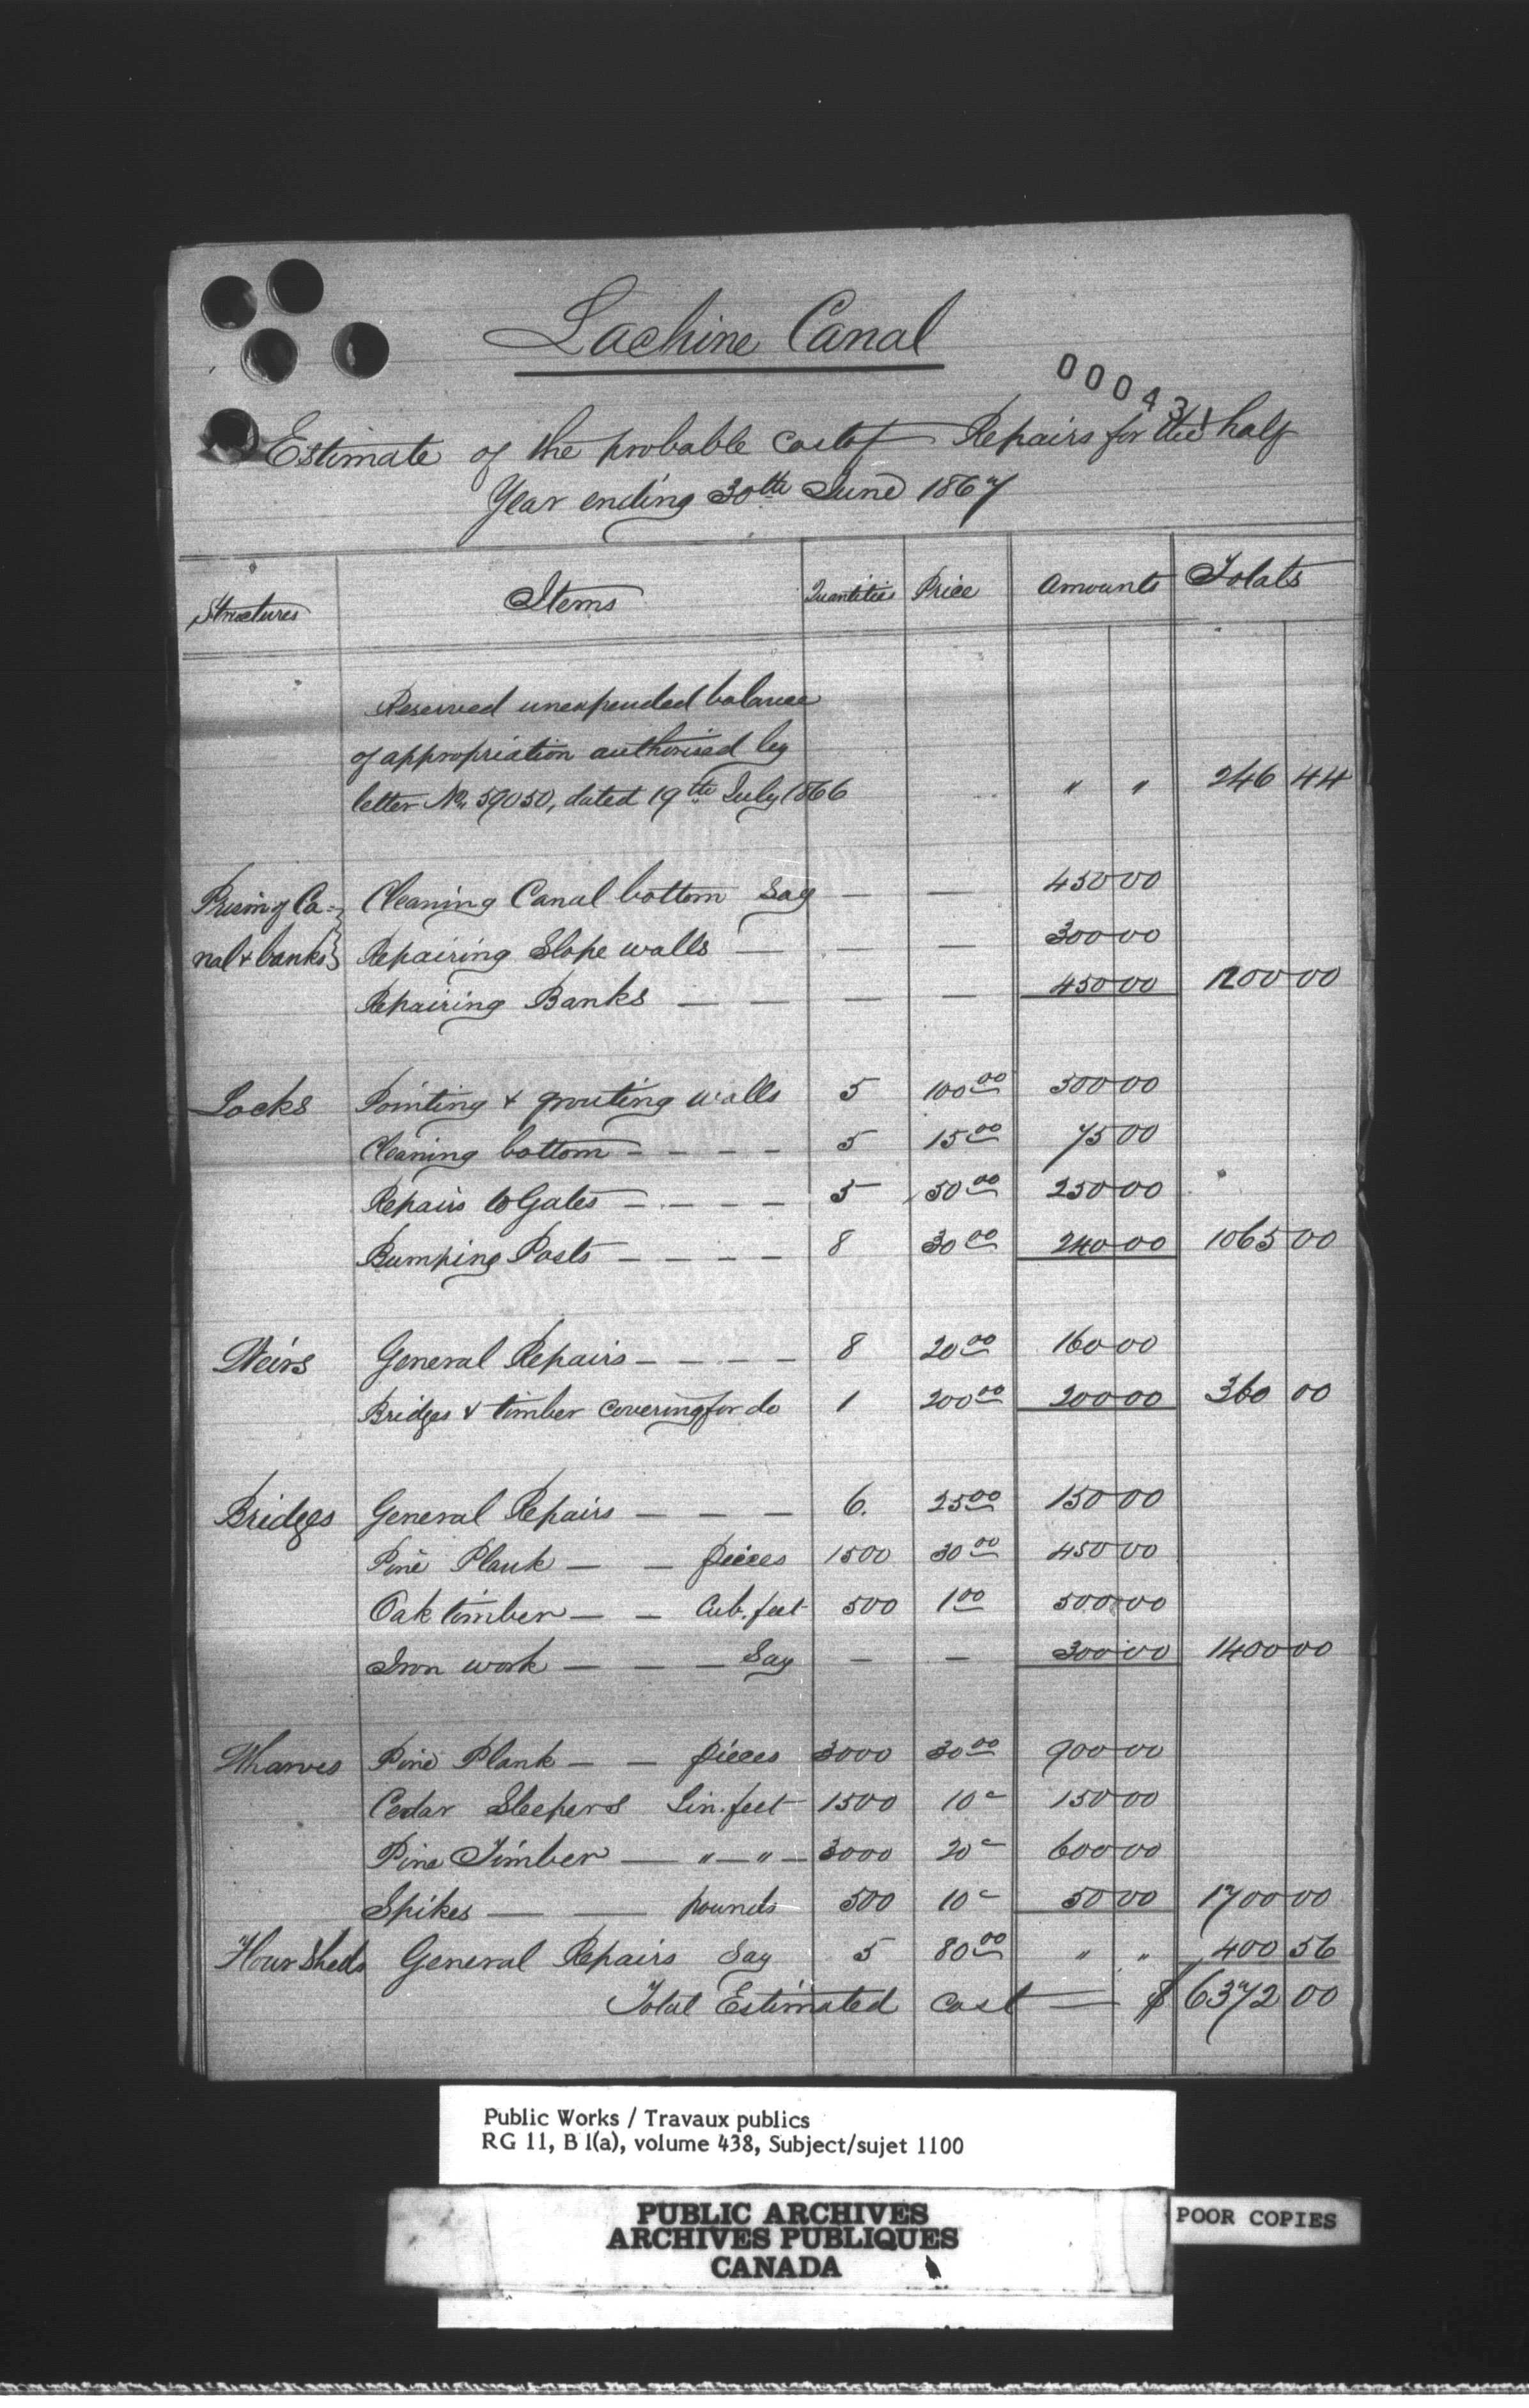 Lachine Canal
000431
Estimate of the probable cost of Repairs for the half
Year ending 30th June 1867
Structures Items Quantities Price Amounts Totals
Reserved unexpended balance
of appropriation authorised by
letter No. 59050, dated 19th July 1866 " " 246 44
Prism of Ca- Cleaning Canal bottom Say — — 450 00
nal & banks } Repairing Slope walls — — — 300 00
Repairing Banks — — — — 450 00 1200 00
Locks Pointing & grouting walls 5 100 00 500 00
Cleaning bottom - - - - 5 15 00 75 00
Repairs to Gates - - - - 5 50 00 250 00
Bumping Posts - - - - 8 30 00 240 00 1065 00
Weirs General Repairs - - - - 8 20 00 160 00
Bridges & timber covering for do 1 200 00 200 00 360 00
Bridges General Repairs — — — 6. 25 00 150 00
Pine Plank — — pieces 1500 30 00 450 00
Oak timber — — Cub. feet 500 1 00 500 00
Iron work — — — Say — — 300 00 1400 00
Wharves Pine Plank — — pieces 3000 30 00 900 00
Cedar Sleepers Lin. feet 1500 10 c 150 00
Pine Timber — " — " — 3000 20 c 600 00
Spikes — — pounds 500 10 c 50 00 1700 00
Flour Sheds General Repairs Say 5 80 00 " " 400 56
Total Estimated Cost = $ 6372 00
Public Works / Travaux publics
RG 11, B 1(a), volume 438, Subject/sujet 1100
PUBLIC ARCHIVES
ARCHIVES PUBLIQUES
CANADA
POOR COPIES